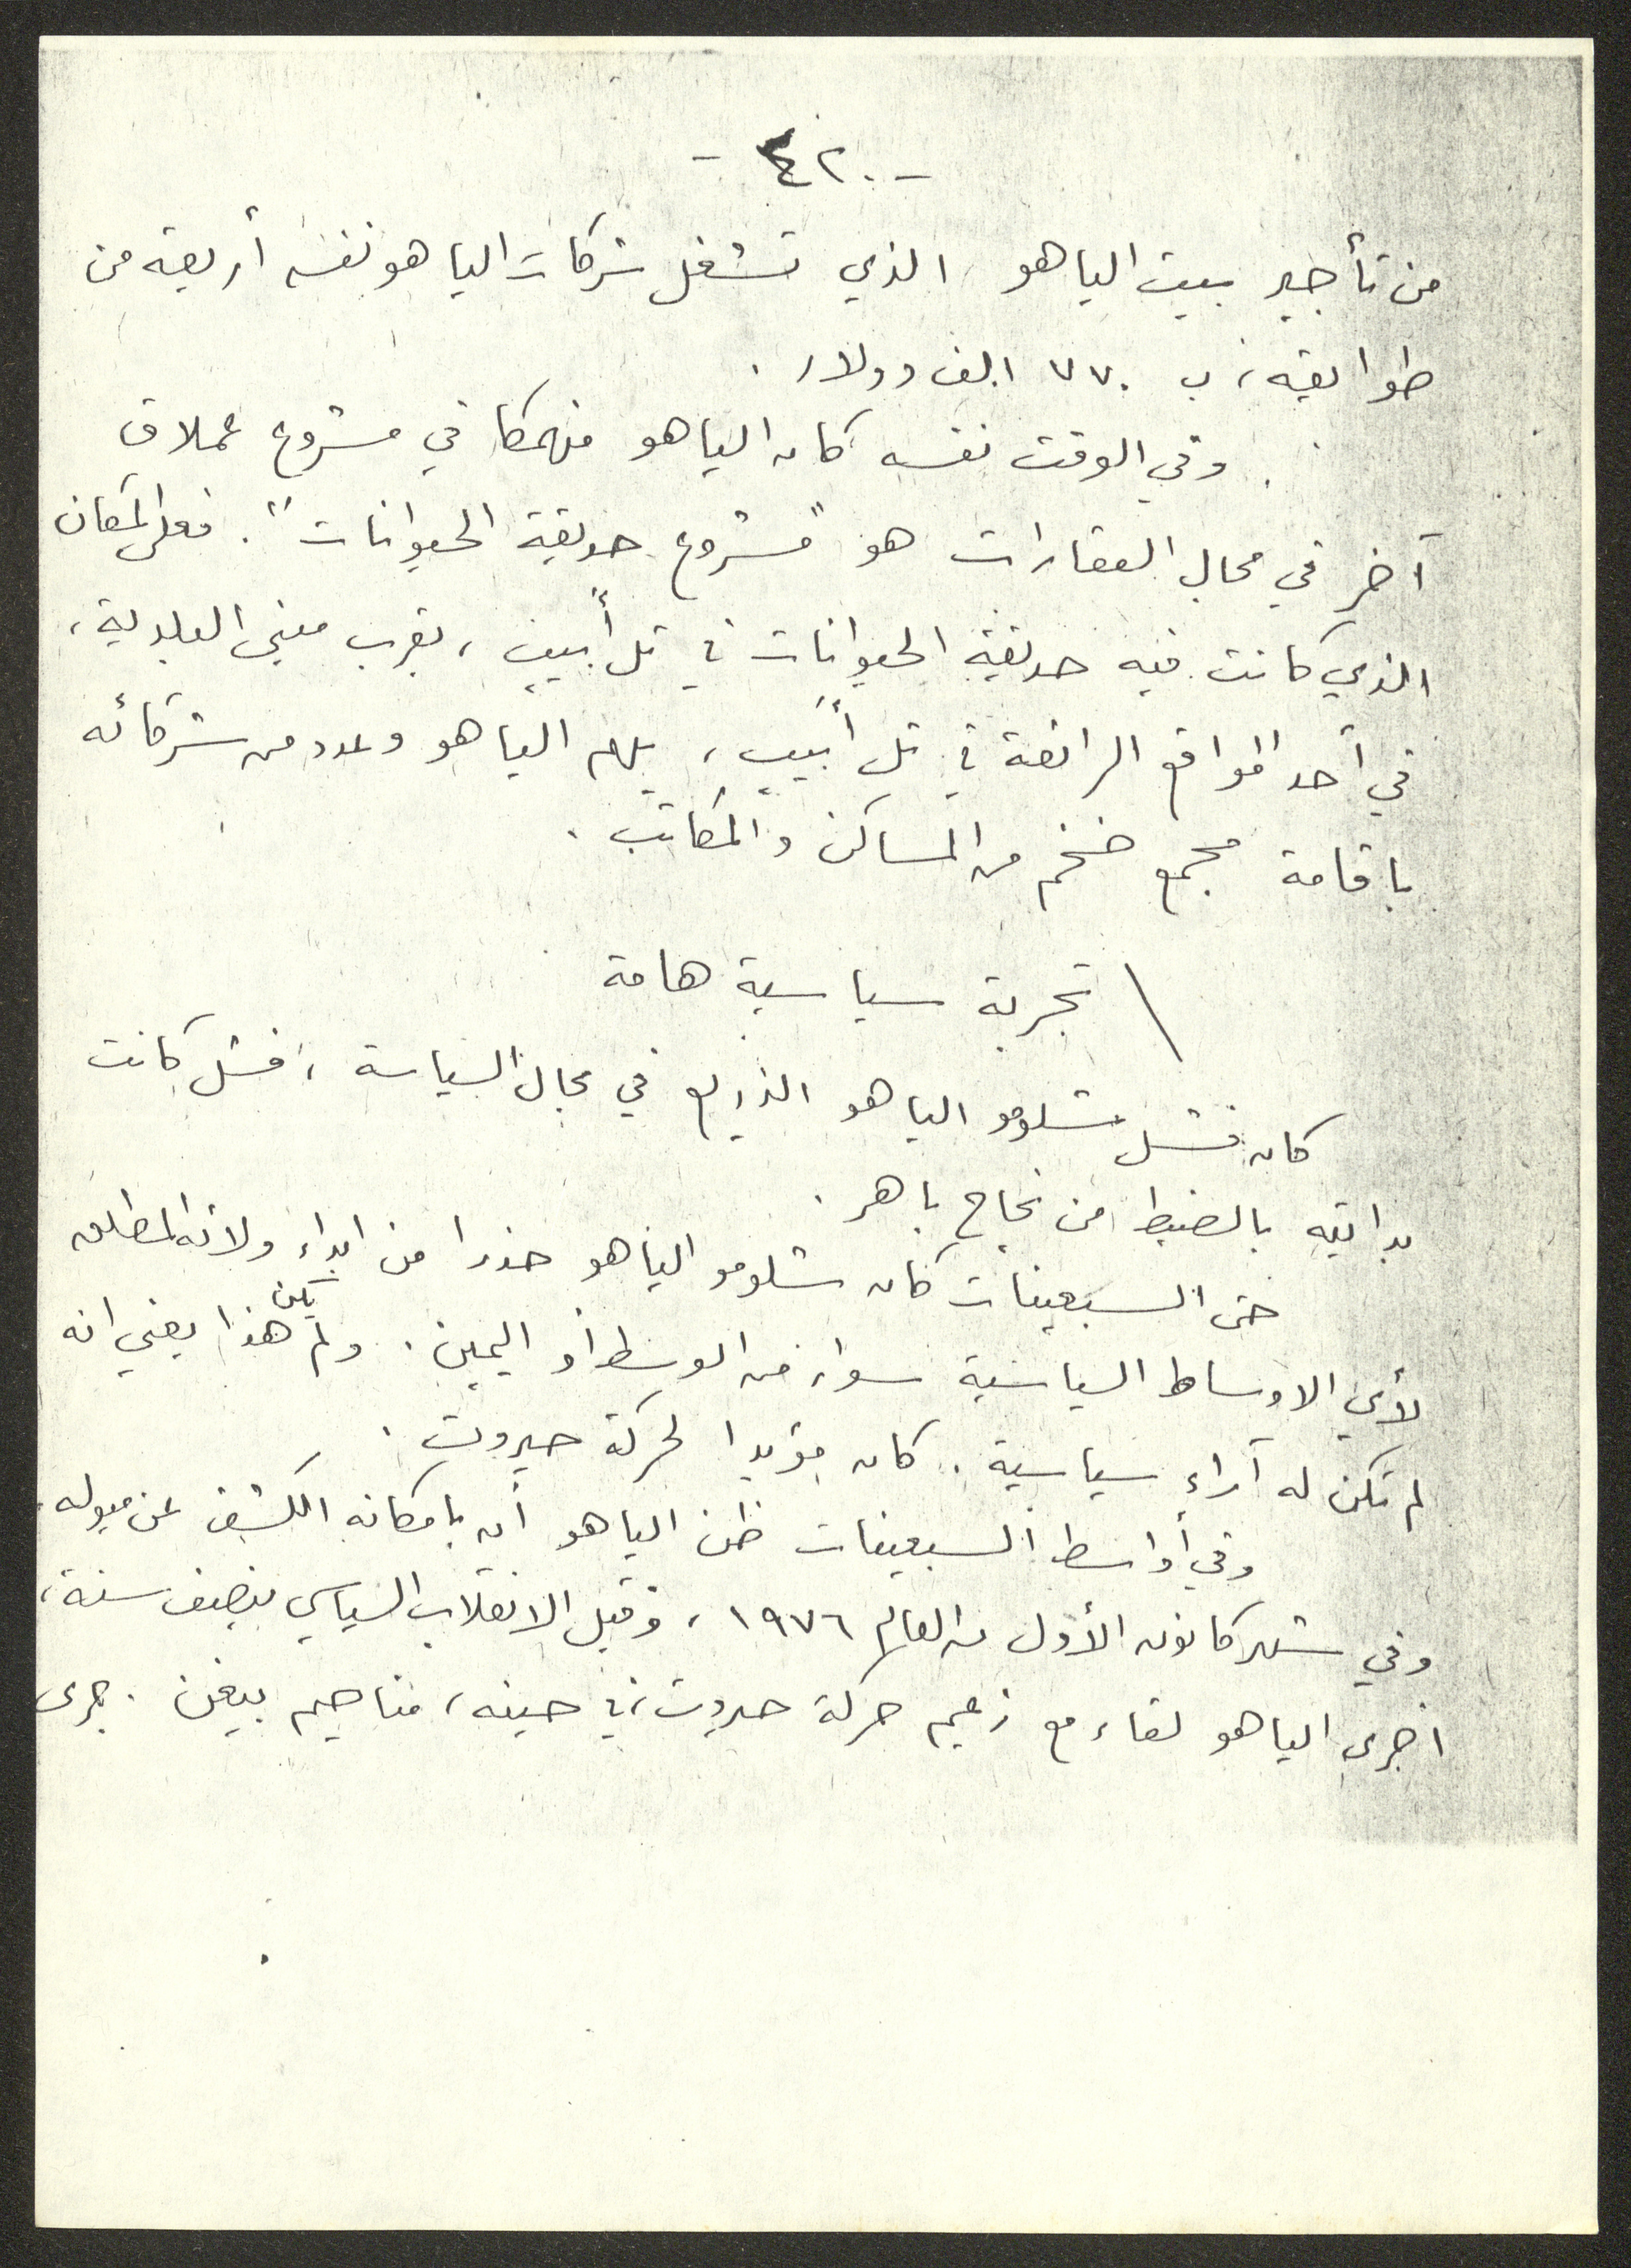 - ٤٢٠ -
من تأجير بيت الياهو الذي تشغل شركات الياهو نفسه أربعة من
طوابقه، ب ٧٧٠ الف دولار .
وفي الوقت نفسه كان الياهو منهمكا في مشروع عملاق
آخر في مجال العقارات هو "مشروع حديقة الحيوانات". فعلى المكان
الذي كانت فيه حديقة الحيوانات في تل أبيب، بقرب مبنى البلدية،
في أحد المواقع الرائعة في تل أبيب، يهم الياهو وعدد من شركائه
باقامة مجمع ضخم من المساكن والمكاتب .
تجربة سياسية هامة
كان فشل شلومو الياهو الذريع في مجال السياسة، فشل كانت
بدايته بالضبط من نجاح باهر .
حتى السبعينات كان شلومو الياهو حذرا من ابداء ولائه المطلق
لأي الاوساط السياسية سواء من الوسط أو اليمين . ولم يكن هذا يعني انه
لم تكن له آراء سياسية . كان مؤيدا لحركة حيروت .
وفي أواسط السبعينات ظن الياهو أن بامكانه الكشف عن ميوله.
وفي شهر كانون الأول من العام ١٩٧٦، وقبل الانقلاب السياسي بنصف سنة،
اجرى الياهو لقاء مع زعيم حركة حيروت، في حينه، مناحيم بيغن . جرى